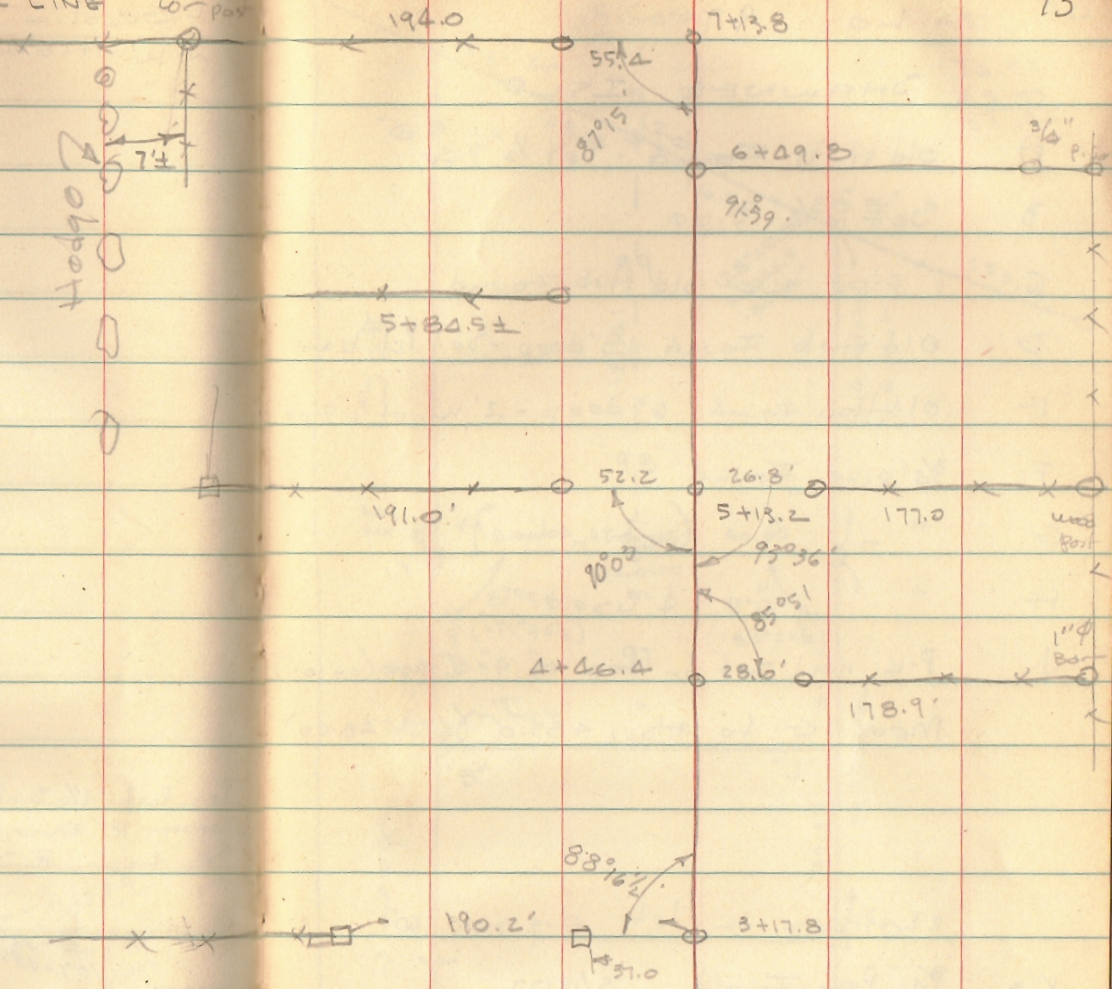 LINE
Cor post
194.0
7+13.8
13
55.4
87°15'
7'±
Hedge
6+49.8
3/4"
91°59'
5+84.5±
52.2
26.8'
191.0'
5+13.2
177.0
wood
Post
90°00
93°36'
85°05'
1"φ
4+46.4
28.6'
178.9'
88°16½'
190.2'
3+17.8
37.0